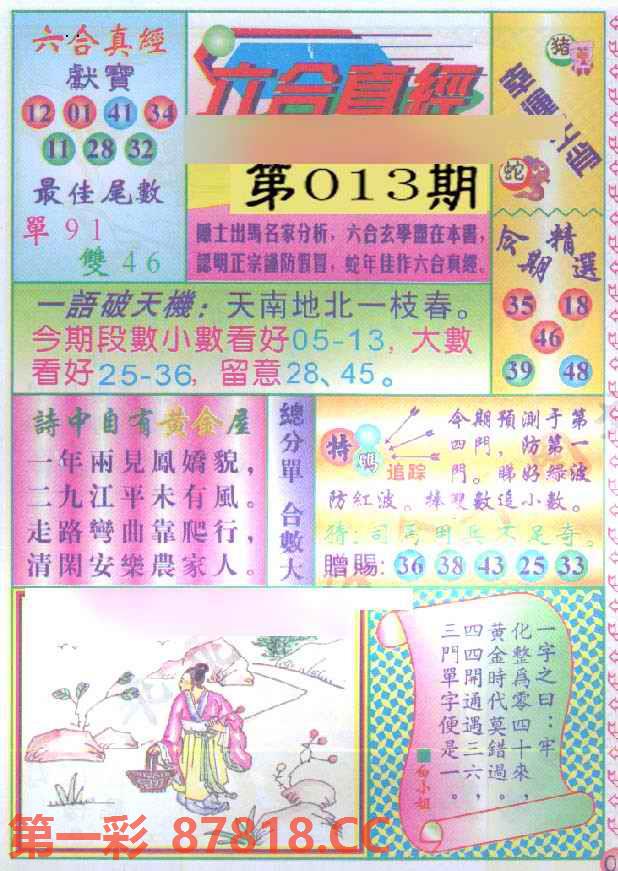 六合真經
獻寶
12 01 41 34
11 28 32
最佳尾數
單 9 1
雙 4 6
六合真經
第013期
隱士出馬名家分析，六合玄學盡在本書，
認明正宗謹防假冒，蛇年佳作六合真經。
豬
蛇
今期精選
35 18
46
39 48
一語破天機：天南地北一枝春。
今期段數小數看好05-13，大數
看好25-36，留意28、45。
詩中自有黃金屋
一年兩見鳳嬌貌，
二九江平未有風。
走路彎曲靠爬行，
清閑安樂農家人。
總分單 合數大
特碼
追踪
今期預測于第
四門，防第一
門。睇好綠波
防紅波。捧雙數追小數。
猜：司馬田兵不足奇。
贈賜：36 38 43 25 33
一字之曰：牢
化整為零四十來，
黃金時代莫錯過，
四四開通遇三六，
三門單字便是一。
白小姐
第一彩 87818.CC